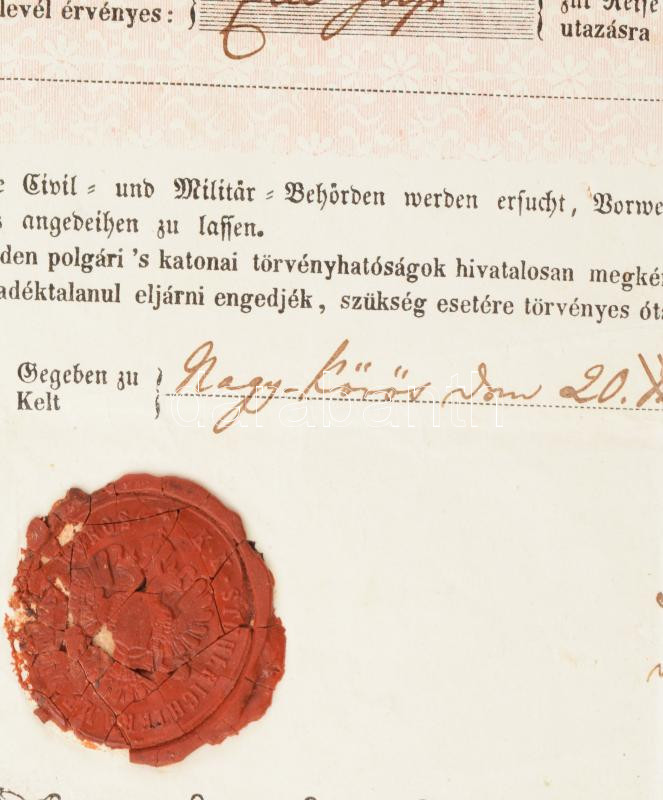 levél érvényes :
zur Reise
utazásra
Civil- und Militär-Behörden werden ersucht, Vorwe
angedeihen zu lassen.
den polgári 's katonai törvényhatóságok hivatalosan megké
adéktalanul eljárni engedjék, szükség esetére törvényes óta
Gegeben zu
Kelt
Nagy-Körös den 20.
darabanth